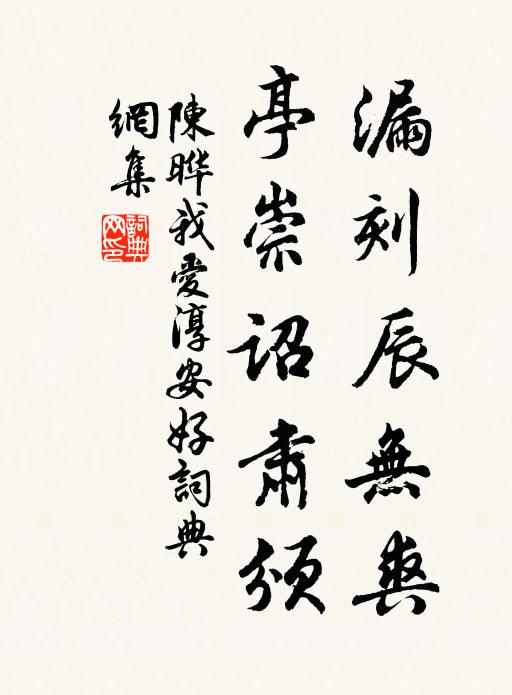 漏刻辰無爽
亭崇詔肅頒
陳曄我愛淳安好詞典
網集
詞典
网印